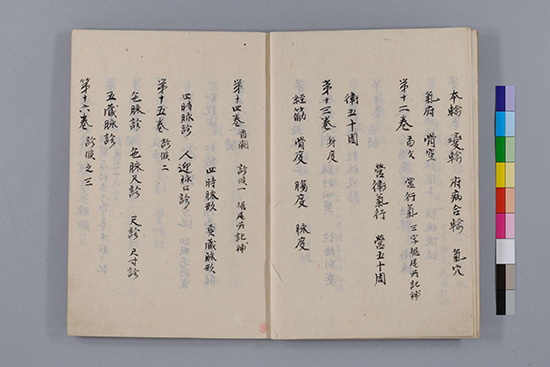 本輸 變輸 府病合輸 氣穴
氣府 骨空
第十二巻 首欠 營行氣 三字據尾所記補
營衛氣行 營五十周
衛五十周
第十三巻 身度
經筋 骨度 腸度 脉度
第十四巻 首闕 診候一 據尾所記補
四時脉形 真藏脉形
四時脉診 人迎脉口診
第十五巻 診候二
色脉診 色脉尺診 尺診 尺寸診
五藏脉診
第十六巻 診候之三